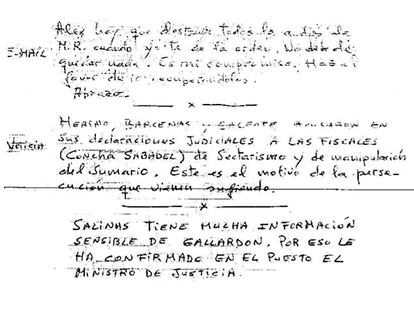 Alex hay que destruir todos los audios de
M.R. cuando yo te de la orden. No debe de
E-MAIL
quedar nada. Es mi compromiso. Haz el
favor de ir recuperándolos.
Abrazo.
x
MERINO, BARCENAS, GALEOTE en
Versión
SUS declaraciones JUDICIALES A LAS FISCALES
(CONCHA SABADEL) de Sectarismo y de manipulación
del Sumario. Este es el motivo de la perse-
cución que vienen sufriendo.
x
SALINAS TIENE MUCHA INFORMACIÓN
SENSIBLE DE GALLARDON. POR ESO LE
HA CONFIRMADO EN EL PUESTO EL
MINISTRO DE JUSTICIA.